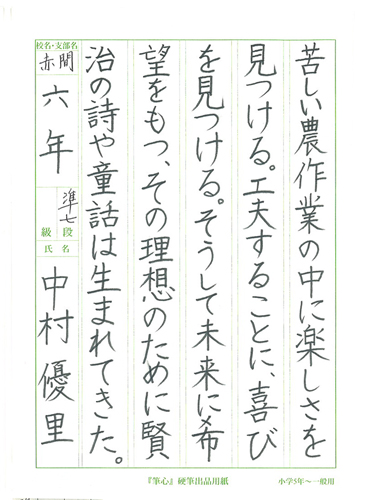 苦しい農作業の中に楽しさを
見つける。工夫することに、喜び
を見つける。そうして未来に希
望をもつ、その理想のために賢
治の詩や童話は生まれてきた。
校名・支部名
赤間
六年
準七
級 段
氏名
中村優里
『筆心』硬筆出品用紙
小学5年〜一般用